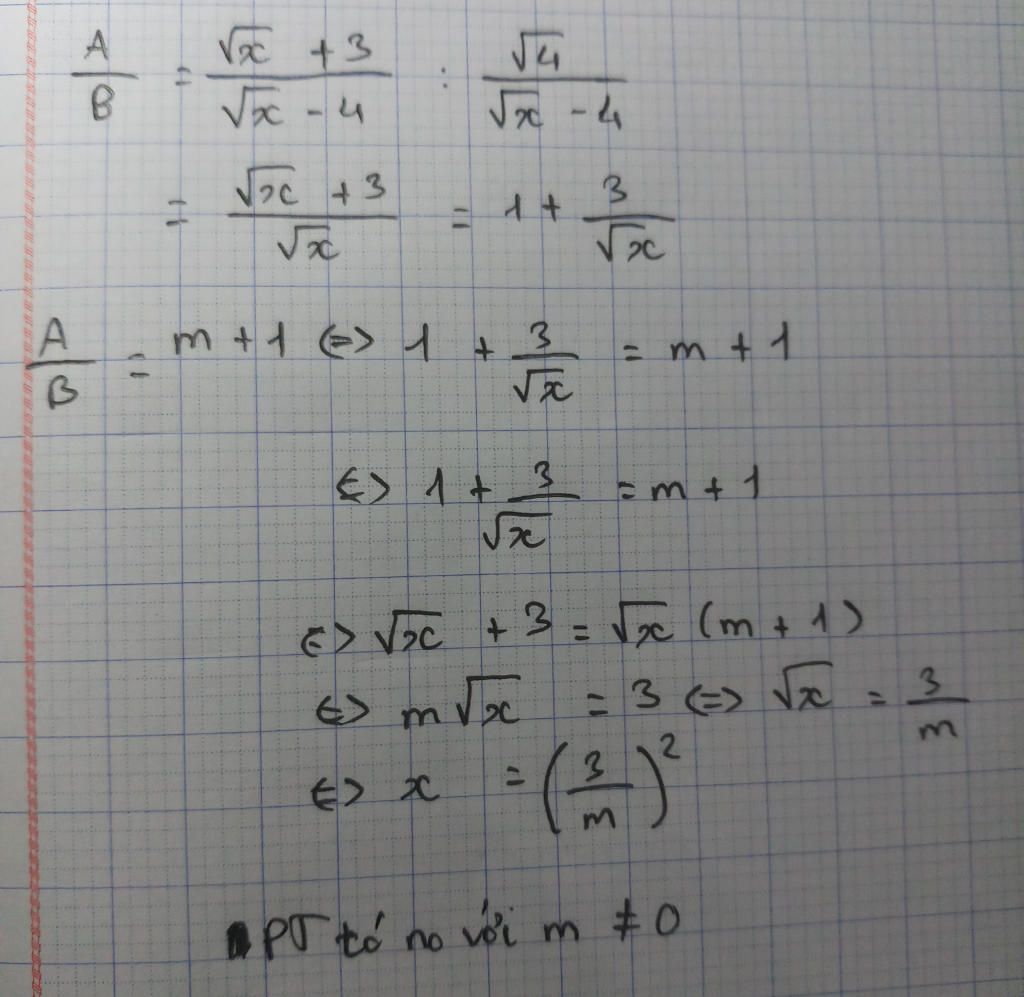 A/B = (√x + 3)/(√x - 4) : √4/(√x - 4)
= (√x + 3)/√x = 1 + 3/√x
A/B = m + 1 <=> 1 + 3/√x = m + 1
<=> 1 + 3/√x = m + 1
<=> √x + 3 = √x (m + 1)
<=> m√x = 3 <=> √x = 3/m
<=> x = (3/m)²
PT có no với m ≠ 0